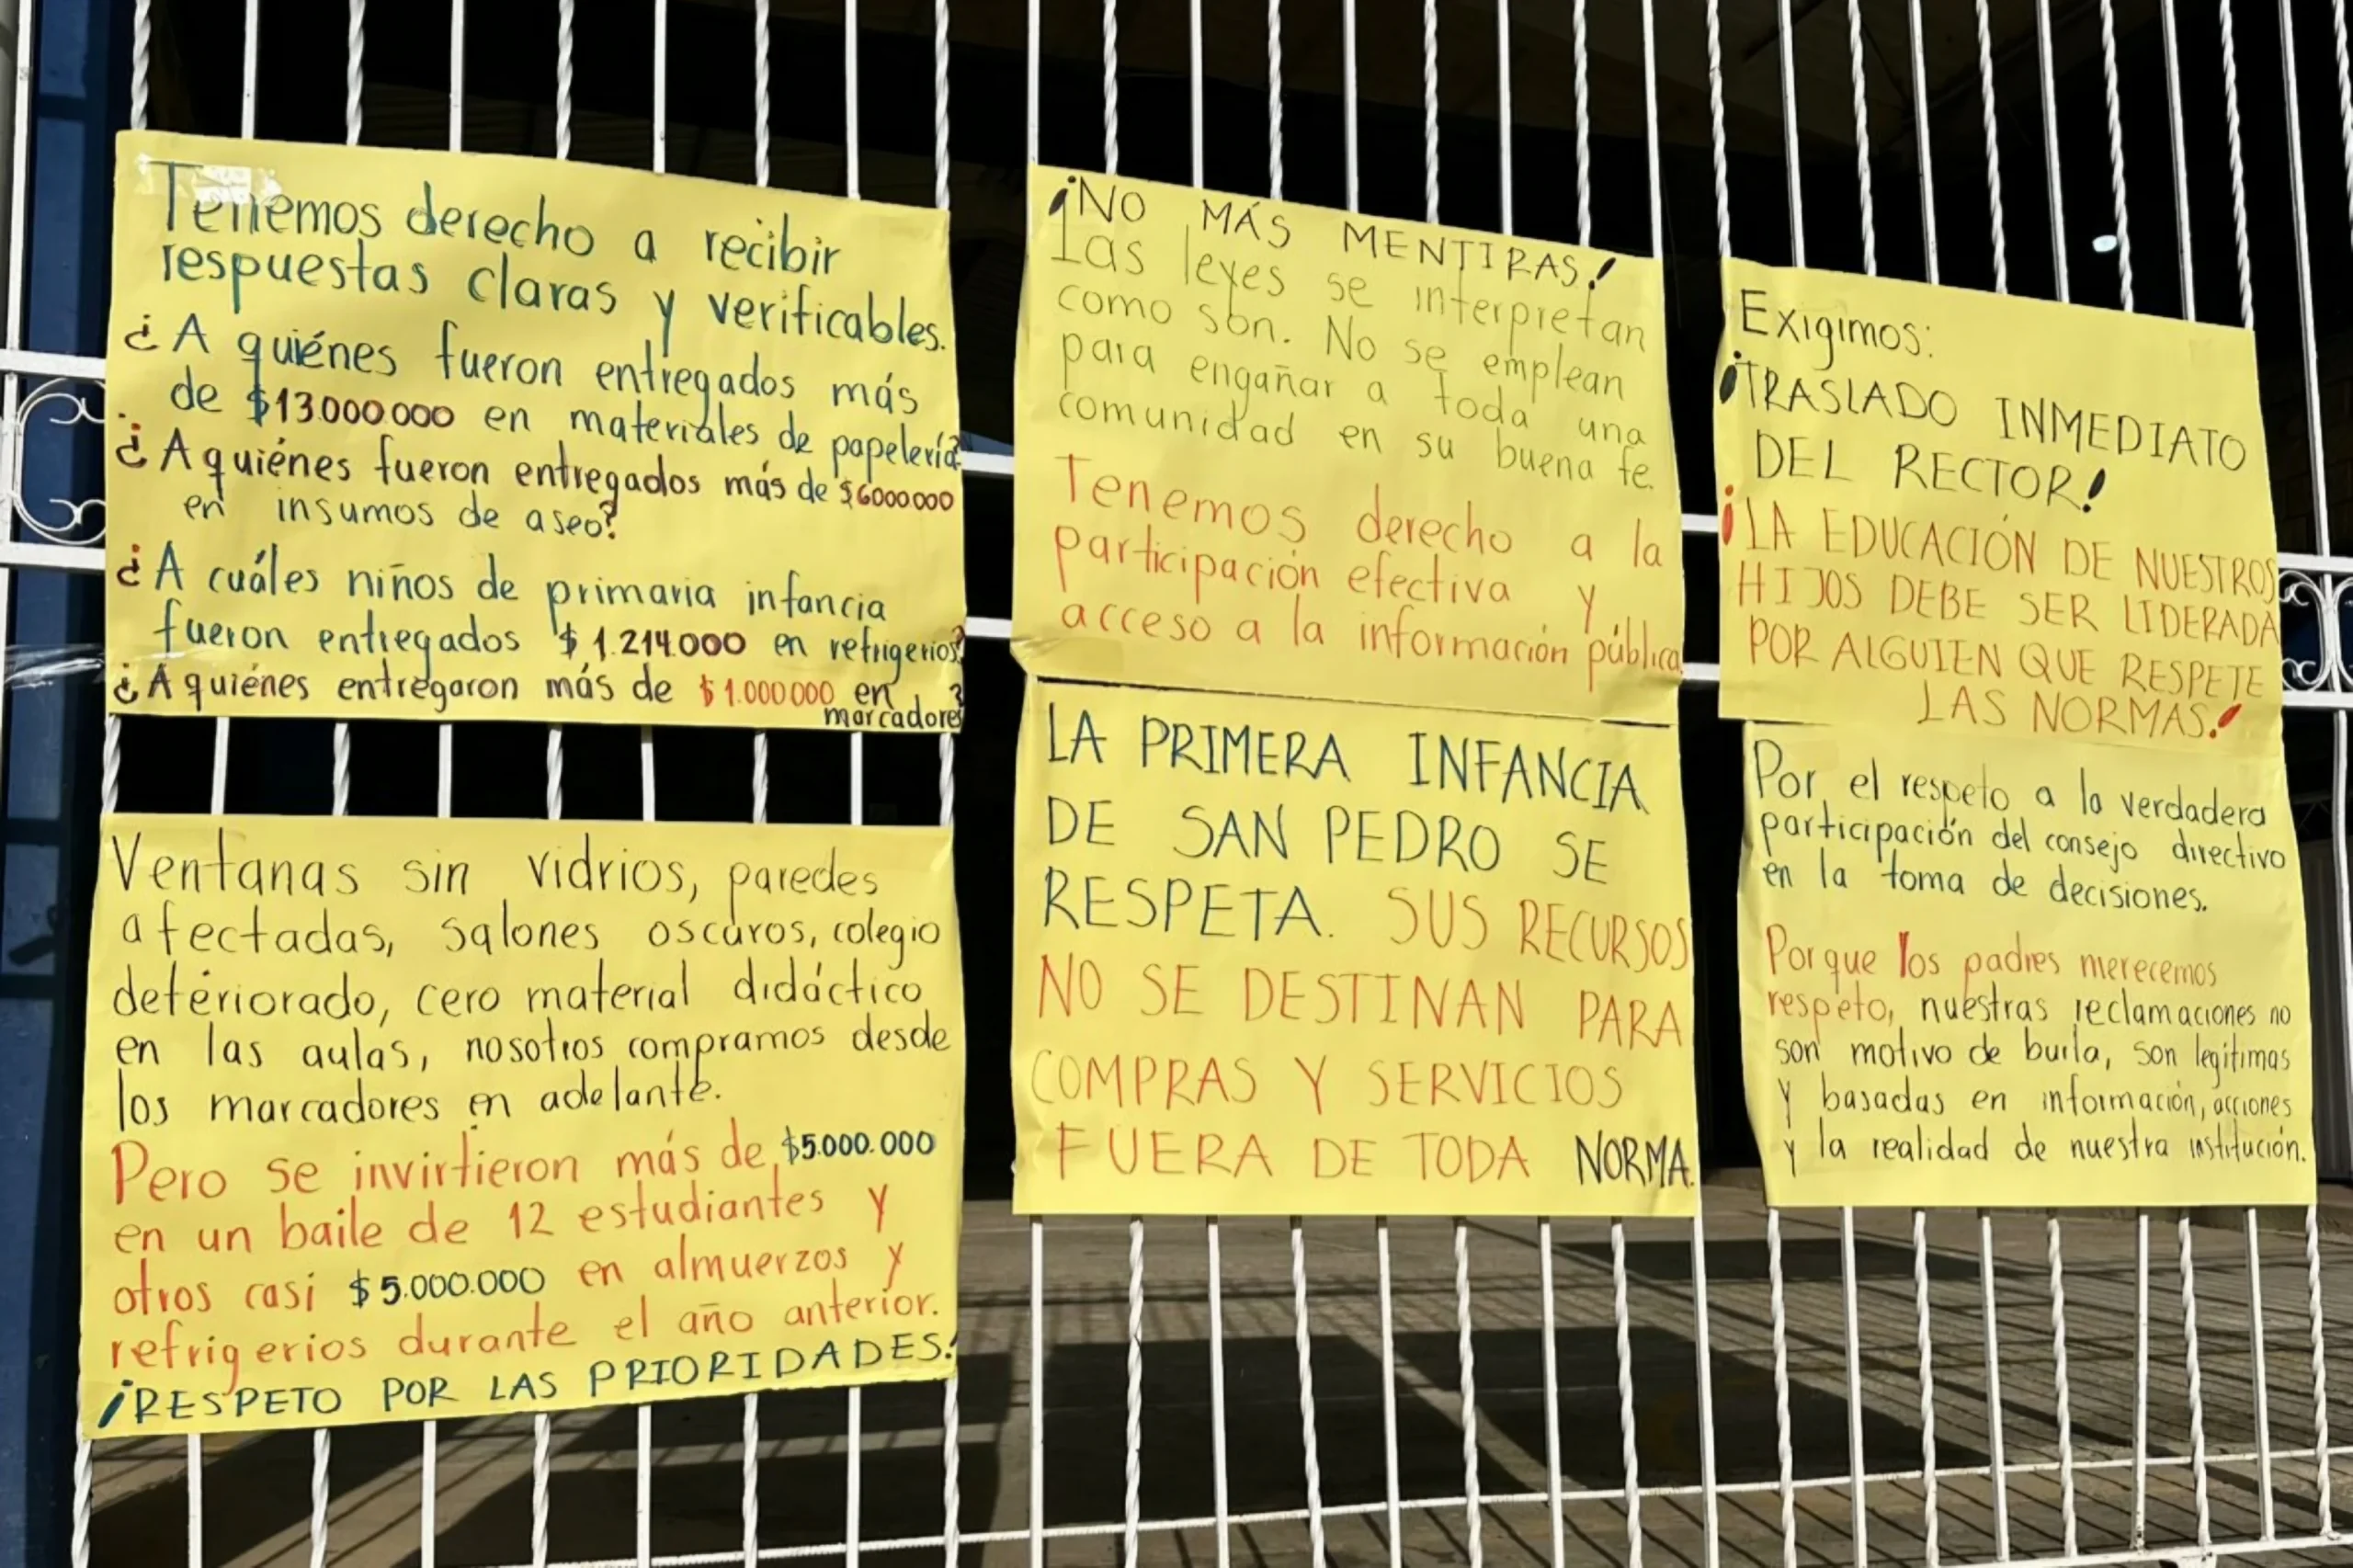 Tenemos derecho a recibir
respuestas claras y verificables.
¿A quiénes fueron entregados más
de $13.000.000 en materiales de papelería?
¿A quiénes fueron entregados más de $6000000
en insumos de aseo?
¿A cuáles niños de primaria infancia
fueron entregados $1.214.000 en refrigerios?
¿A quiénes entregaron más de $1.000000 en
marcadores?
Ventanas sin vidrios, paredes
afectadas, salones oscuros, colegio
deteriorado, cero material didáctico
en las aulas, nosotros compramos desde
los marcadores en adelante.
Pero se invirtieron más de $5.000.000
en un baile de 12 estudiantes y
otros casi $5.000.000 en almuerzos y
refrigerios durante el año anterior.
¡RESPETO POR LAS PRIORIDADES!
¡NO MÁS MENTIRAS!
Las leyes se interpretan
como son. No se emplean
para engañar a toda una
comunidad en su buena fe.
Tenemos derecho a la
participación efectiva y
acceso a la información pública
LA PRIMERA INFANCIA
DE SAN PEDRO SE
RESPETA. SUS RECURSOS
NO SE DESTINAN PARA
COMPRAS Y SERVICIOS
FUERA DE TODA NORMA.
Exigimos:
¡TRASLADO INMEDIATO
DEL RECTOR!
¡LA EDUCACIÓN DE NUESTROS
HIJOS DEBE SER LIDERADA
POR ALGUIEN QUE RESPETE
LAS NORMAS!
Por el respeto a la verdadera
participación del consejo directivo
en la toma de decisiones.
Porque los padres merecemos
respeto, nuestras reclamaciones no
son motivo de burla, son legítimas
y basadas en información, acciones
y la realidad de nuestra institución.